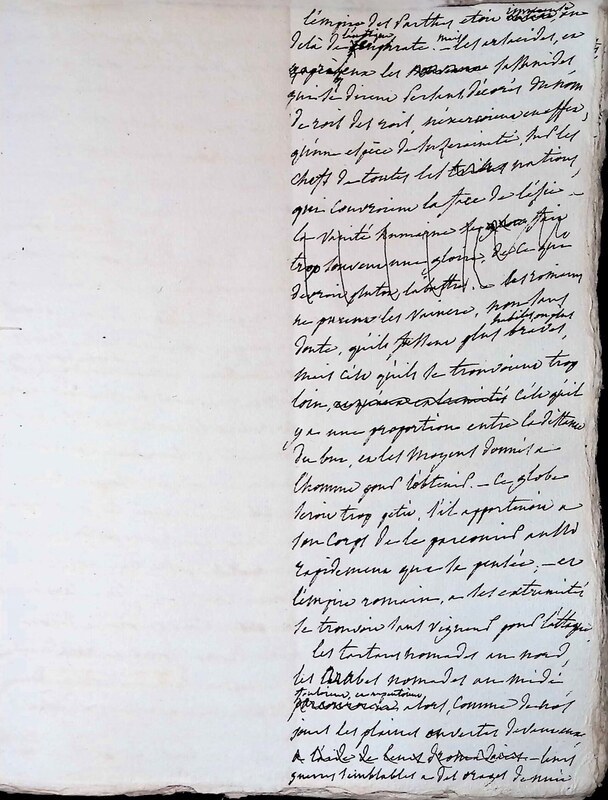 l'empire des Parthes etoit immense, au
delà de l'euphrate. — mais les arsacides, et
après eux les sassanides
qui se dirent Persans, décorés du nom
de rois des rois, n'exercoient en effet,
qu'une espèce de suzeraineté, sur les
chefs de toutes les tribus nations,
qui couvroient la face de l'asie. —
la vanité humaine se fait
trop souvent une gloire, de ce qui
devroit plutôt l'abattre. — les romains
ne purent les vaincre, non sans
doute, qu'ils fussent plus habiles ou plus braves,
mais c'est qu'ils se trouvoient trop
loin, c'est qu'il
y a une proportion entre la distance
du but, et les moyens donnés a
l'homme pour l'obtenir. — Ce globe
seroit trop petit, s'il appartenoit a
son corps de le parcourir aussi
rapidement que sa pensée; — et
l'empire romain, a ses extremités
se trouvoit sans vigueur pour l'attaque
les tartares nomades au nord,
les Arabes nomades au midi
parcouroient alors, comme de nos
jours les plaines ouvertes devant eux
a l'aide de leurs dromadaires — leurs
guerres semblables a des orages de nuit